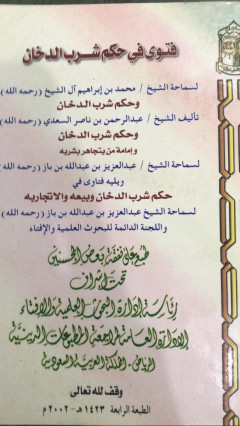 فتوى في حكم شرب الدخان
لسماحة الشيخ / محمد بن إبراهيم آل الشيخ (رحمه الله)
وحكم شرب الدخان
تأليف الشيخ / عبدالرحمن بن ناصر السعدي (رحمه الله)
وحكم شرب الدخان
وإمامة من يتجاهر بشربه
لسماحة الشيخ / عبدالعزيز بن عبدالله بن باز (رحمه الله)
ويليه فتاوى في
حكم شرب الدخان وبيعه والاتجاربه
لسماحة الشيخ عبدالعزيز بن عبدالله بن باز (رحمه الله)
واللجنة الدائمة للبحوث العلمية والإفتاء
طبع على نفقة بعض المحسنين
تحت إشراف
رئاسة إدارة البحوث العلمية والإفتاء
الإدارة العامة لمراجعة المطبوعات الدينية
الرياض - المملكة العربية السعودية
وقف لله تعالى
الطبعة الرابعة ١٤٢٣هـ - ٢٠٠٢م